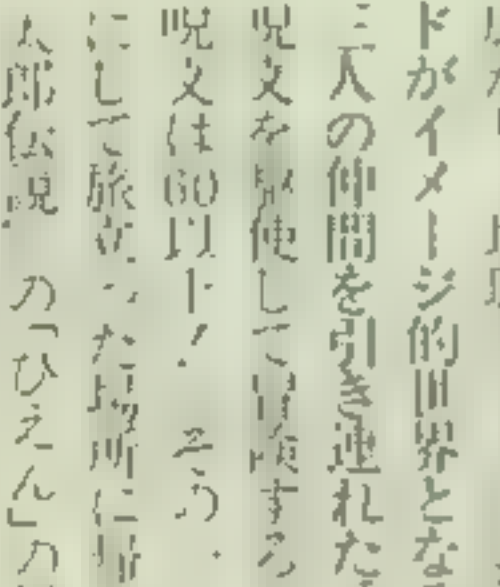 ドがイメージ的世界とな
三人の仲間を引き連れた
呪文を駆使して冒険する
呪文は60以上! その
にして旅立った場所に帰
太郎伝説 の「ひえん」の